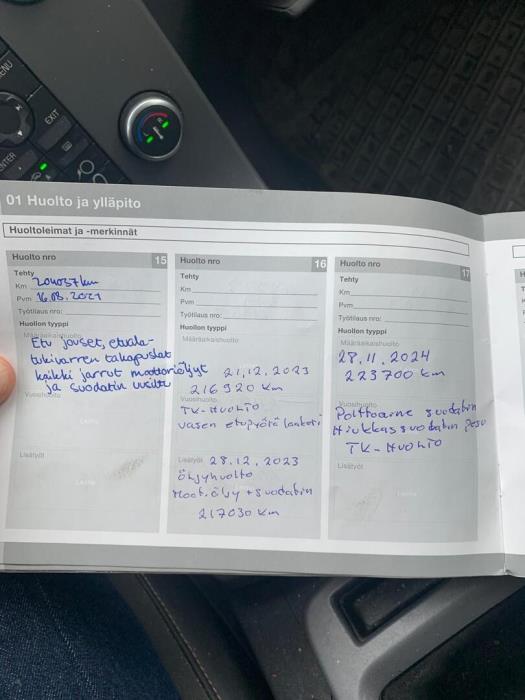 MENU
EXIT
ENTER
01 Huolto ja ylläpito
Huoltoleimat ja -merkinnät
Huolto nro 15
Tehty
Km 204037 km
Pvm 16.08.2021
Työtilaus nro:
Huollon tyyppi
Määräaikaishuolto
Etu jouset, etuala-
tukivarren takapuslat
kaikki jarrut moottoriöljyt
ja suodatin uusittu
Vuosihuolto
Lisätyöt
Leima
Huolto nro 16
Tehty
Km
Pvm
Työtilaus nro:
Huollon tyyppi
Määräaikaishuolto
21.12.2023
216920 km
Vuosihuolto
TK-Huolto
vasen etupyörä laakeri
Lisätyöt 28.12.2023
Öljyhuolto
Moot.öljy + suodatin
217030 km
Huolto nro 17
Tehty
Km
Pvm
Työtilaus nro:
Huollon tyyppi
Määräaikaishuolto
28.11.2024
223700 km
Vuosihuolto
Polttoaine suodatin
Hiukkassuodatin pesu
TK-Huolto
Lisätyöt
Leima
H
T